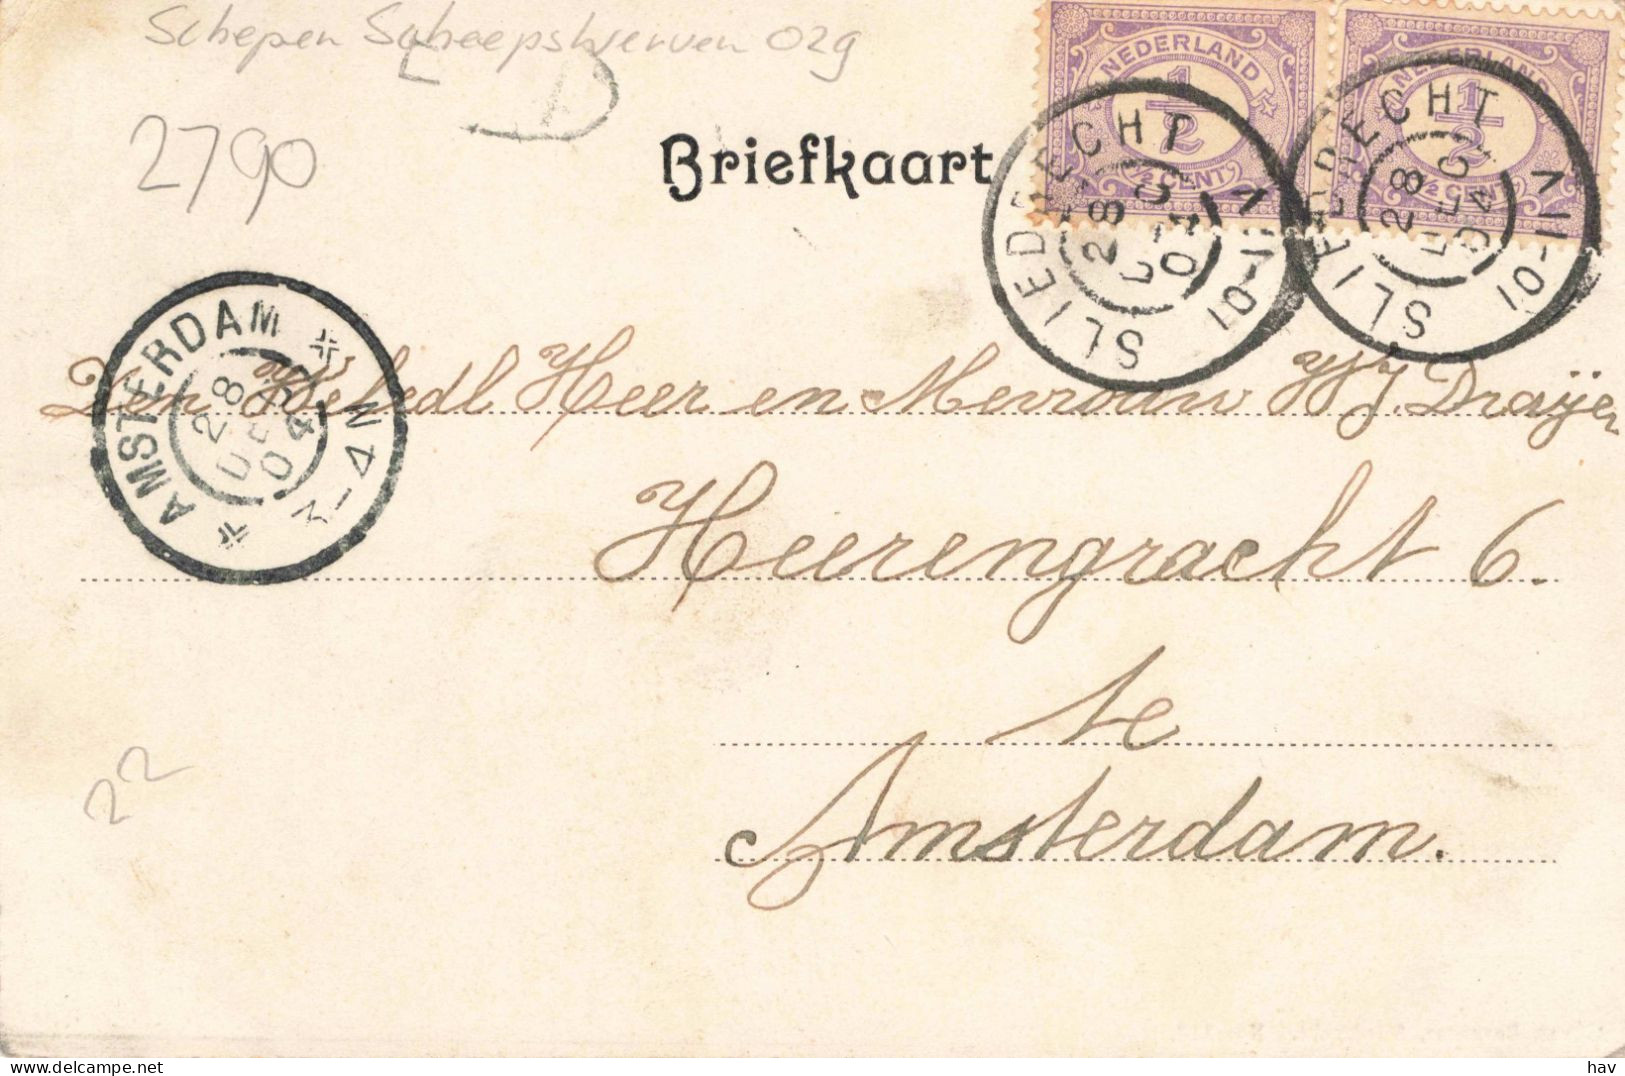 Schepen Scheepswerven 029
2790
Briefkaart
NEDERLAND
1/2
1/2 CENT
NEDERLAND
1/2
1/2 CENT
SLIEDRECHT
28 DEC 04
10-11V
SLIEDRECHT
28 DEC 04
10-11V
AMSTERDAM
28 DEC 04
3-4N
Den WelEdl Heer en Mevrouw W J. Draijer
Heerengracht 6.
te
Amsterdam.
22
hav